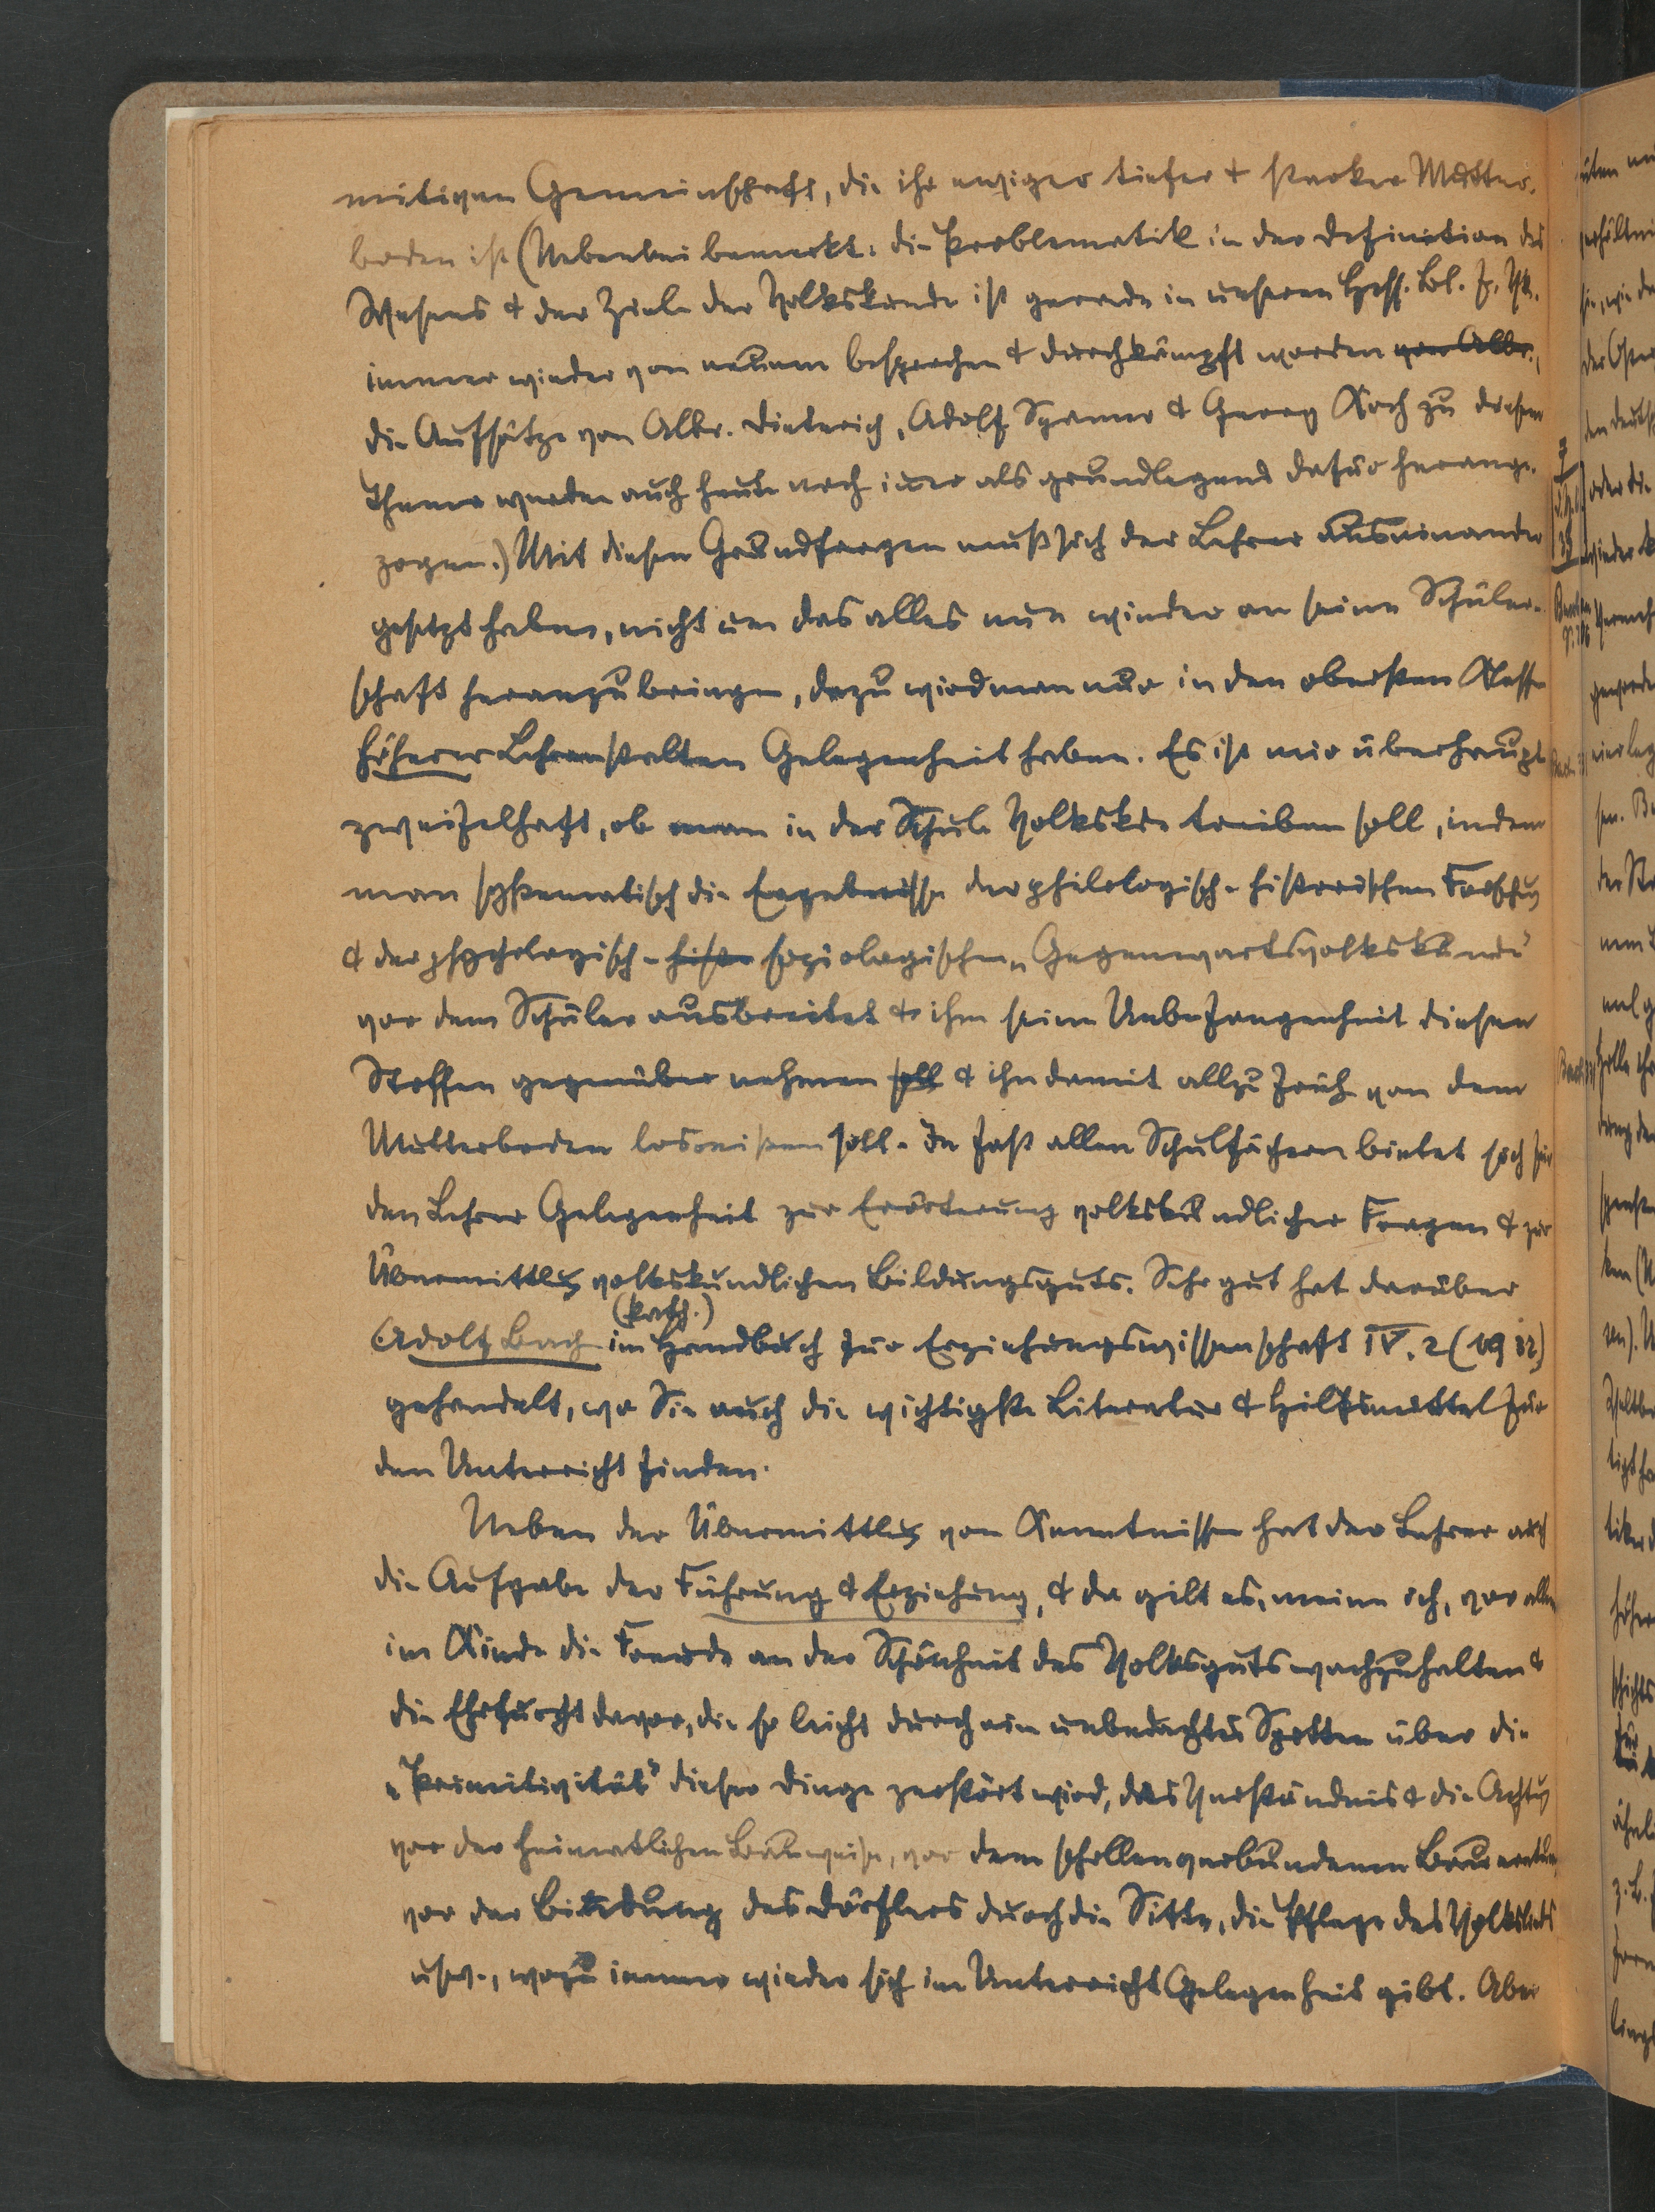 mitiven Gemeinschaft, die ihr ewiger tiefer & starker Mutter-
boden ist (Nebenbei bemerkt: die Problematik in der Definition des
Wesens & der Ziele der Volkskunde ist gerade in unseren Hess. Bl. f. Vk.
immer wieder von neuem besprochen & durchkämpft worden von Albr.,
die Aufsätze von Albr. Dieterich, Adolf Spamer & Georg Koch zu diesem
Thema werden auch heute noch immer als grundlegend dafür herange-
zogen.) Mit diesen Grundfragen muß sich der Lehrer auseinander
gesetzt haben, nicht um das alles nun wieder an seine Schüler-
schaft heranzubringen, dazu wird man nur in den obersten Klassen
höherer Lehranstalten Gelegenheit haben. Es ist mir überhaupt
zweifelhaft, ob man in der Schule Volkskde treiben soll, indem
man systematisch die Ergebnisse der philologisch-historischen Forschung
& der psychologisch-histo soziologischen „Gegenwartsvolkskunde"
vor dem Schüler ausbreitet & ihm seine Unbefangenheit diesen
Stoffen gegenüber nehmen soll & ihn damit allzu früh von dem
Mutterboden losreißen soll. In fast allen Schulfächern bietet sich für
den Lehrer Gelegenheit zur Erörterung volkskundlicher Fragen & zur
Übermittlung volkskundlichen Bildungsguts. Sehr gut hat darüber
(kath.)
Adolf Bach im Handbuch zur Erziehungswissenschaft IV. 2 (1932)
gehandelt, wo Sie auch die wichtigste Literatur & Hilfsmittel für
den Unterricht finden.
Neben der Übermittlung von Kenntnissen hat der Lehrer auch
die Aufgabe der Führung & Erziehung, & da gilt es, meine ich, vor allem
im Kinde die Freude an der Schönheit des Volksguts wachzuhalten &
die Ehrfurcht davor, die so leicht durch ein unbedachtes Spotten über die
„Primitivität" dieser Dinge zerstört wird, das Verständnis & die Achtung
vor der heimatlichen Bauweise, vor dem schollenverbundenen Bauerntum,
vor der Bindung des Dörflers durch die Sitte, die Pflege des Volkslieds
usw., wozu immer wieder sich im Unterricht Gelegenheit gibt. Aber